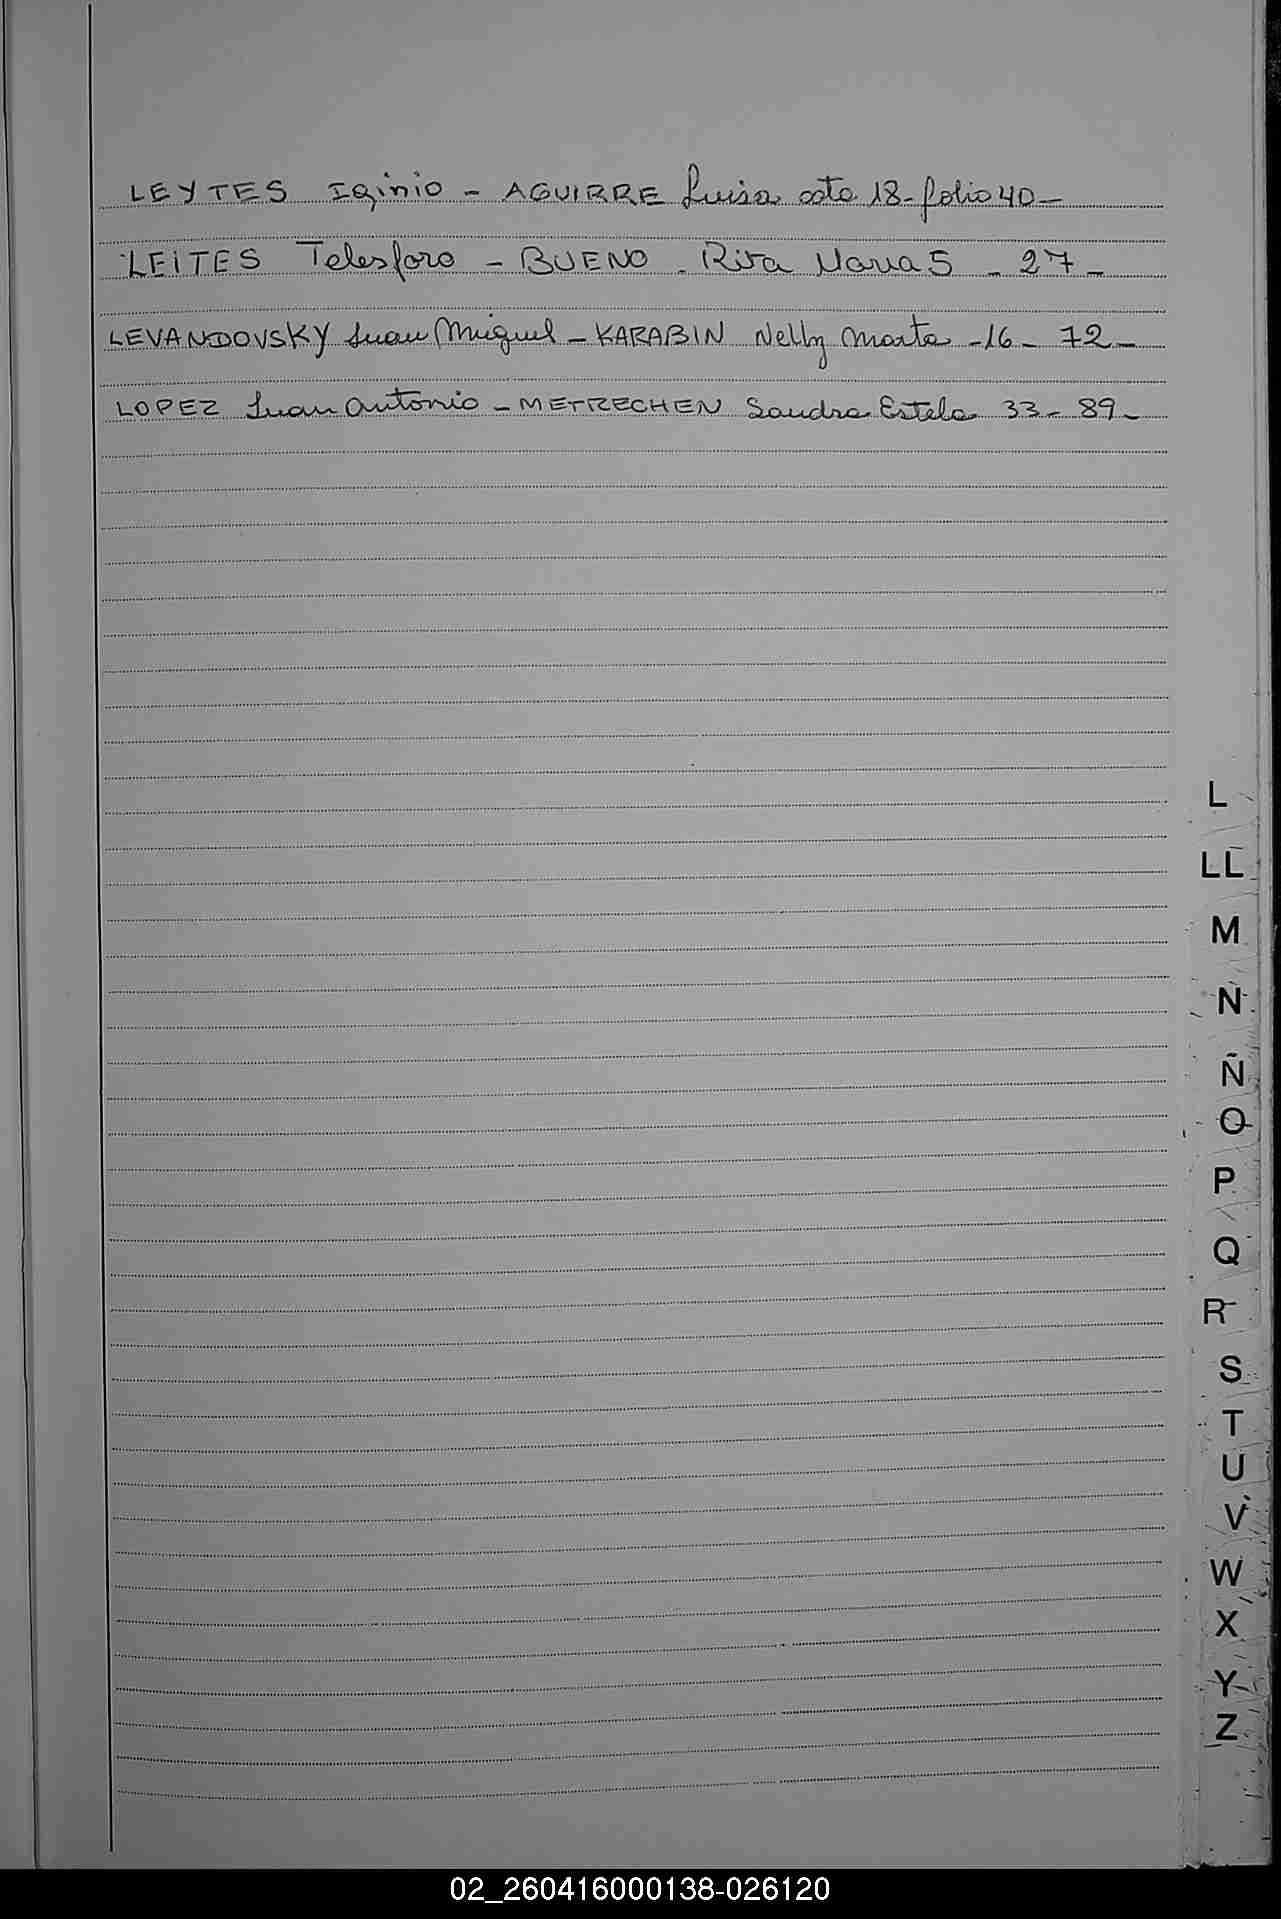 LEYTES Iginio - AGUIRRE Luisa acta 18 - folio 40 -
LEITES Telesforo - BUENO - Rita Maria 5 - 27 -
LEVANDOVSKY Juan Miguel - KARABIN Nelly Marta - 16 - 72 -
LOPEZ Juan Antonio - METRECHEN Sandra Estela 33 - 89 -
L
LL
M
N
Ñ
O
P
Q
R
S
T
U
V
W
X
Y
Z
02_260416000138-026120